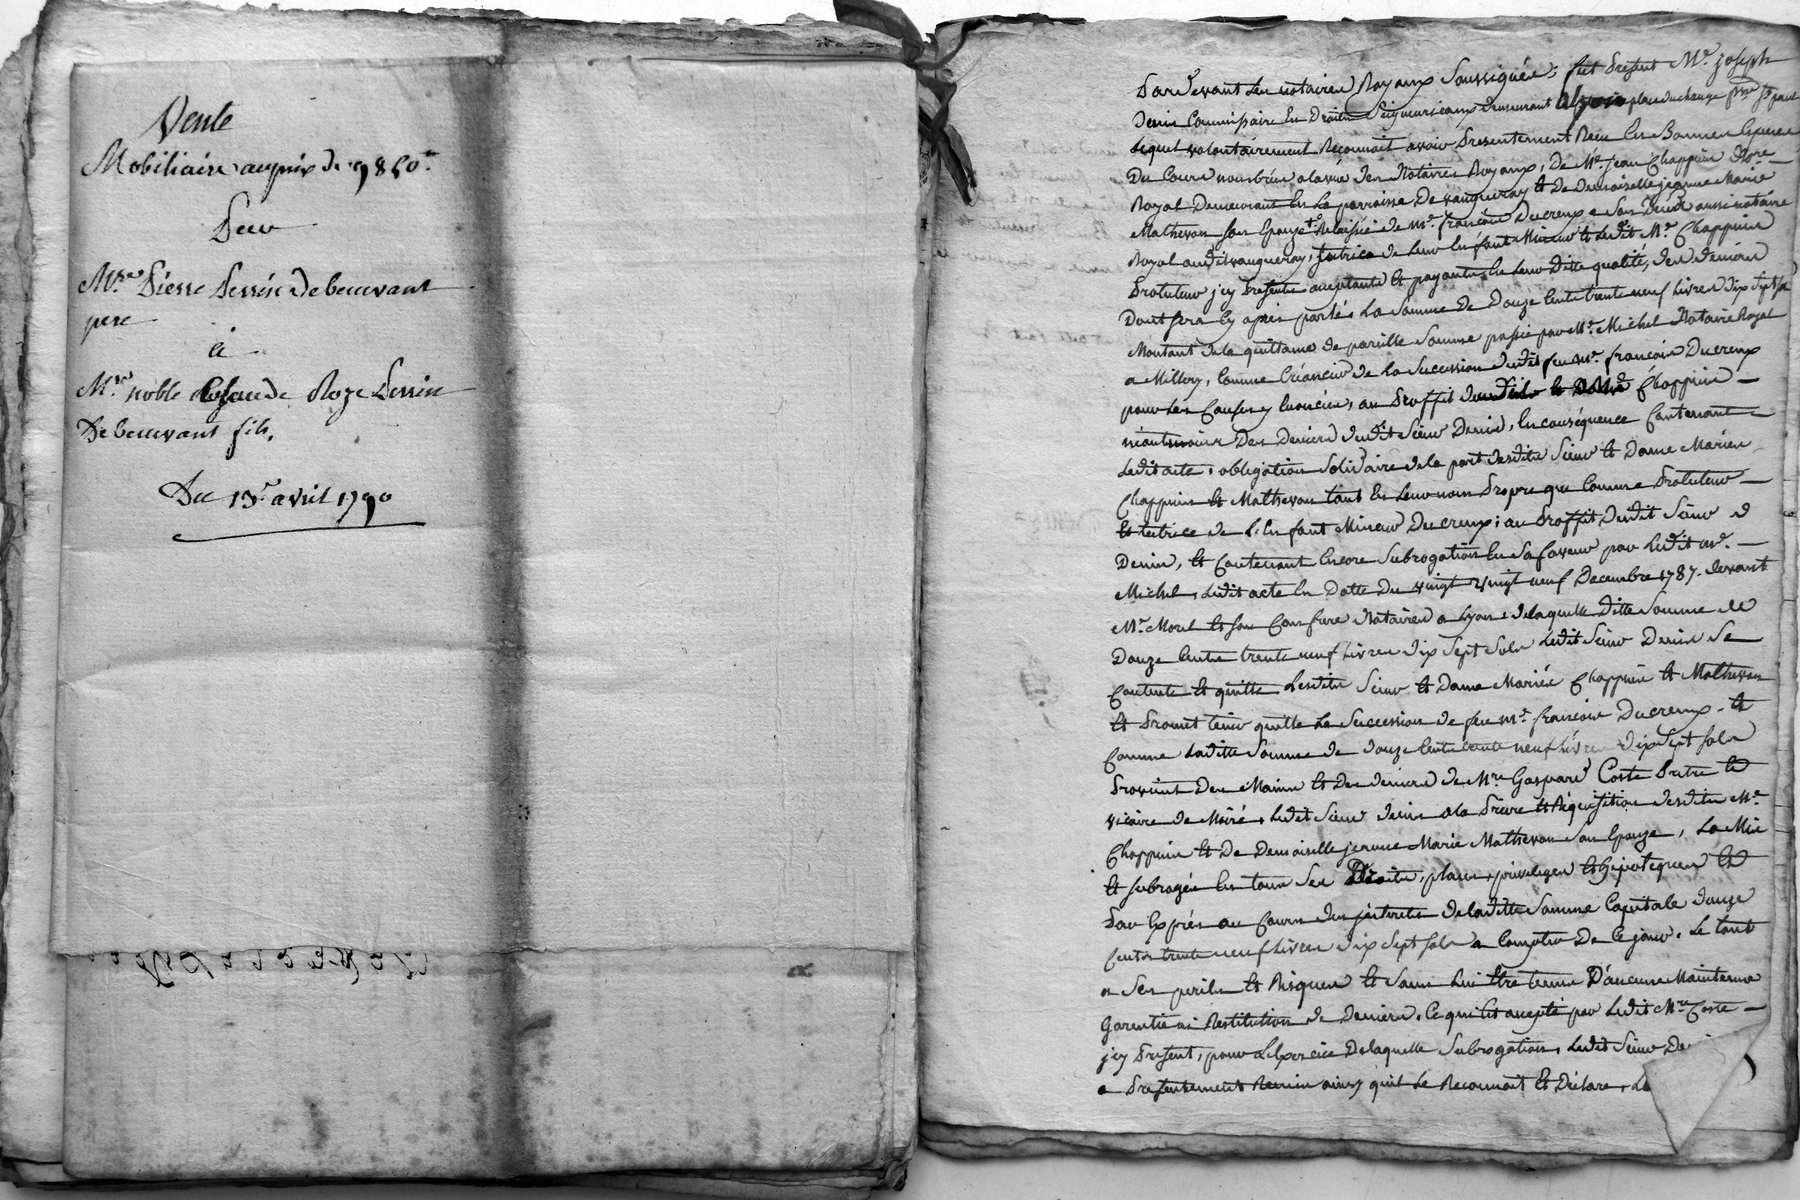 Vente
Mobiliaire au prix de 9850ᵗᵗ
Par
Mʳᵉ Pierre Perrin Debeauvant
pere
à
Mʳᵉ noble Roze Perrin
Debeauvant fils,
Du 13ᵉ avril 1790
Pardevant les notaires Royaux Soussignés, fut Present Mᵉ joseph
Denis Commissaire En Droits Seigneuriaux demeurant a Lyon place du change psse St paul
Lequel volontairement Reconnoit avoir Presentement Reçu En Bonnes Especes
Du Cours nombrées a la vüe des Notaires Royaux, de Mᵉ jean Chappuis Nore
Royal Demeurant En La parroisse De vaugneray et de Demoiselle jeanne Marie
Mathevon son Epouze Relaissée de mᵉ françois Ducreux a Son Decès aussi notaire
Royal audit vaugneray, tutrice de Leur Enfant Mineur et Ledit Mᵉ Chappuis
Protuteur jcy Presents acceptants et payants En Leur Ditte qualité, des deniers
Dont sera Cy après parlé, La Somme De Douze Cents trente neuf Livres Dix Sept sols
Montant de la quittance de pareille Somme passée par Mᵉ Michel Notaire Royal
a Millery, Comme Créancier de La Succession dudit feu mᵉ françois Ducreux
pour Les Causes y Enoncées, au Proffit Chappuis
néantmoins Des Deniers dudit Sieur Denis, En conséquence Contenant
Ledit acte, obligation Solidaire de la part desdits Sieur et Dame Mariés
Chappuis et Mathevon tant En Leur nom Propre que Comme Protuteur
et tutrice de L'Enfant Mineur Ducreux; au Proffit Dudit Sieur
Denis, et Contenant Encore Subrogation En Sa faveur par Ledit mᵉ
Michel, Ledit acte En Datte Du vingt vingt neuf Decembre 1787. devant
Mᵉ Morel et Son Confrere Notaires a Lyon, de laquelle Ditte Somme de
Douze Cents trente neuf Livres Dix Sept Sols Ledit Sieur Denis Se
Contente et quitte Lesdits Sieur et Dame Mariés Chappuis et Mathevon
et Promet tenir quitte La Succession de feu mᵉ françois Ducreux. et
Comme Laditte Somme de douze Cents trente neuf Livres Dix Sept sols
Provient Des Mains et Des deniers de Mʳᵉ Gaspard Coste Pretre et
vicaire de Moiré, Ledit Sieur Denis a la Prière et Réquisition desdits Mᵉ
Chappuis et De Demoiselle jeanne Marie Mathevon Son Epouze, La Mis
et subrogée En tous Ses Droits, places, privileges et Hipoteques et
Par Exprés au Cours des jnterets de laditte Somme Capitale Douze
Cents trente neuf Livres Dix Sept sols a Compter De Ce jour. Le tout
a Ses perils et Risques et Sans Lui Etre tenu D'aucune Maintenue
Garentie ni Restitution de Deniers. Ce qui Est accepté par Ledit Mʳᵉ Coste
jcy Present, pour L'Exercice De laquelle Subrogation, Ledit Sieur
a Presentement Remis ainsy qu'il Le Reconnoit et Déclare,